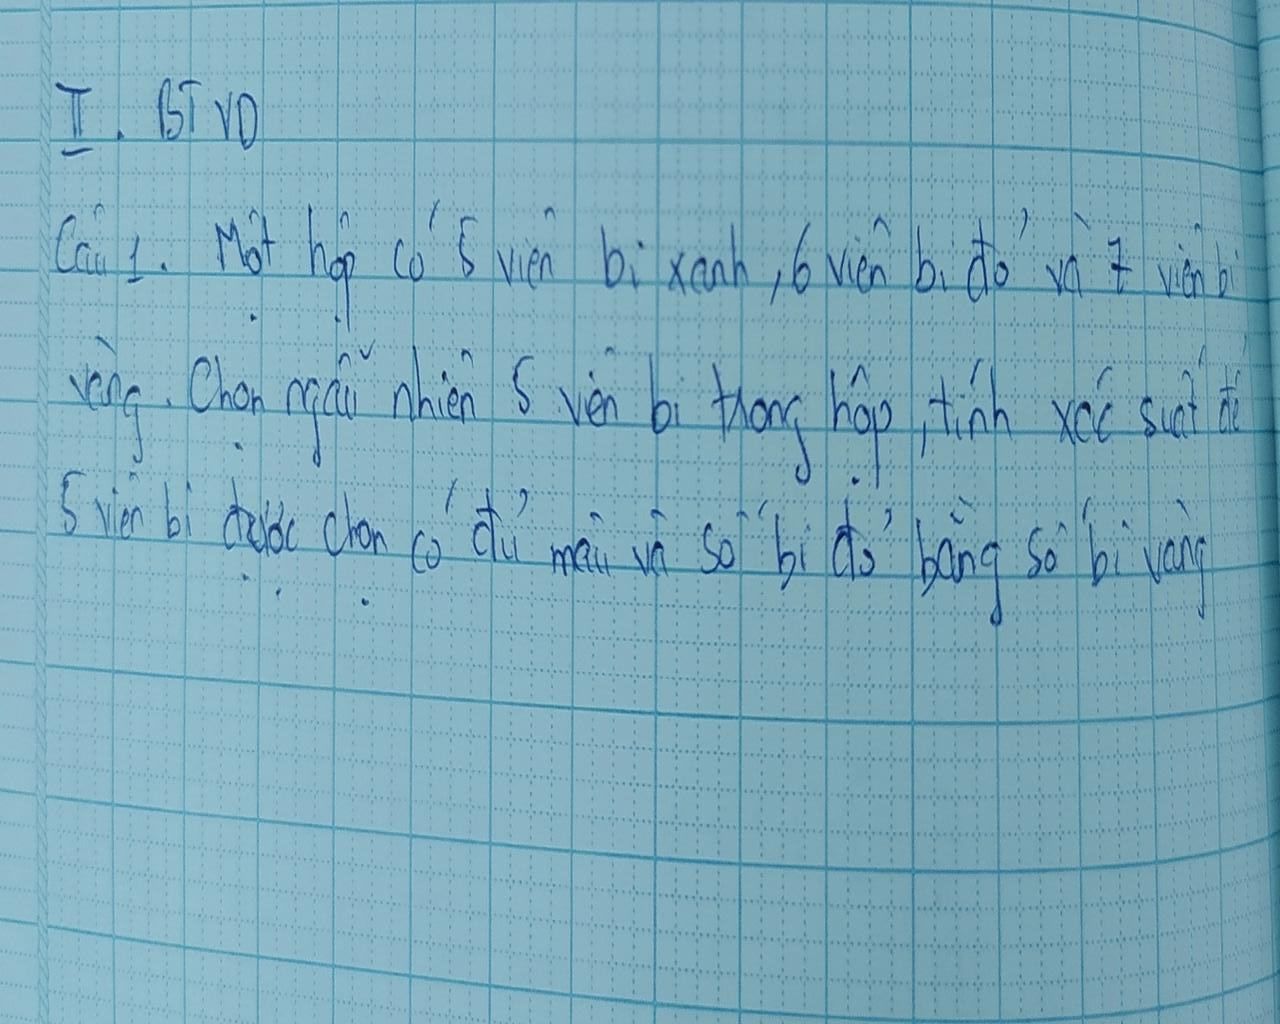 II. BTVD
Câu 1. Một hộp có 5 viên bi xanh, 6 viên bi đỏ và 7 viên bi
vàng. Chọn ngẫu nhiên 5 viên bi trong hộp, tính xác suất để
5 viên bi được chọn có đủ màu và số bi đỏ bằng số bi vàng